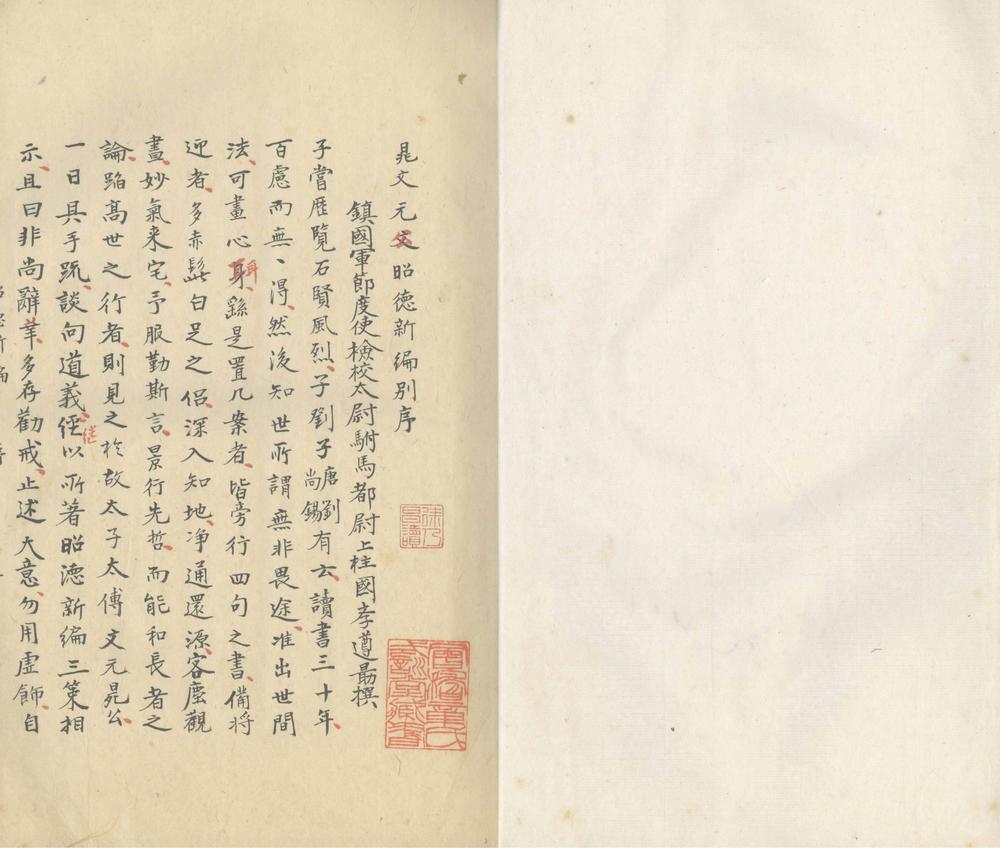 晁文元公昭德新編別序
鎮國軍節度使檢校太尉駙馬都尉上柱國李遵朂撰
子當歷覽石賢風烈子劉子唐劉尚錫有云讀書三十年
百慮而無、得然後知世所謂無非畏途准出世間
法可畫心身繇是置几案者皆旁行四句之書備將
迎者多赤髭白足之侶深入知地净通還源客塵觀
盡妙氣来宅予服勤斯言景行先哲而能和長者之
論蹈髙世之行者則見之於故太子太傅文元晁公
一日具手䟽談句道義径以所著昭德新編三策相
示且曰非尚辭筆多存勸戒止述大意勿用虚飾自